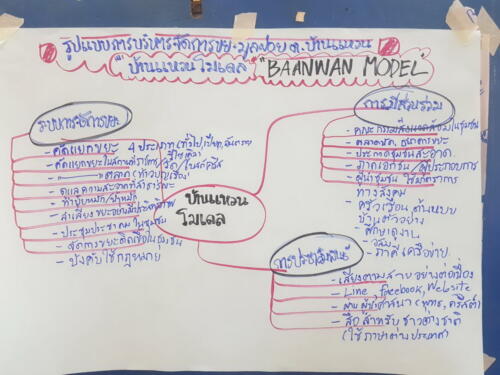 รูปแบบการบริหารจัดการขยะมูลฝอย ต.บ้านแหวน
"บ้านแหวนโมเดล" "BAANWAN MODEL"
ระบบการจัดการขยะ
- คัดแยกขยะ 4 ประเภท (ทั่วไป, เปียก, อันตราย
รีไซเคิล)
- คัดแยกขยะในสถานที่ราชการ/วัด/
ตลาด
- ดูแลความสะอาดที่สาธารณะ
- ทำปุ๋ยหมัก/น้ำหมัก
- ลำเลียงขยะอย่างมีประสิทธิภาพ
- ประชุมประชาคมในชุมชน
- จัดการขยะติดเชื้อในชุมชน
- บังคับใช้กฎหมาย
บ้านแหวน
โมเดล
การมีส่วนร่วม
- คณะกรรมสิ่งแวดล้อมในชุมชน
- ตลาดนัด ธนาคารขยะ
- ประกวดชุมชนสะอาด
- ภาคเอกชน/ผู้ประกอบการ
- ผู้นำชุมชน ใช้มาตรการ
ทางสังคม
- ครัวเรือน ต้นแบบ
บ้านตัวอย่าง
- ศึกษาดูงาน
- ภาคีเครือข่าย
การประชาสัมพันธ์
- เสียงตามสายอย่างต่อเนื่อง
- Line, facebook, Website
- ผ่านผู้นำศาสนา (พุทธ, คริสต์)
- สื่อสำหรับชาวต่างชาติ
(ใช้ภาษาต่างประเทศ)